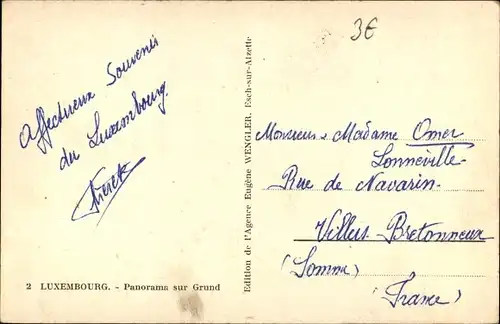 3€
Affectueux Souvenir
du Luxembourg.
2 LUXEMBOURG. - Panorama sur Grund
Edition de l'Agence Eugène WENGLER, Esch-sur-Alzette
Monsieur & Madame Omer
Lonneville
Rue de Navarin
Villers Bretonneux
(Somme)
(France)